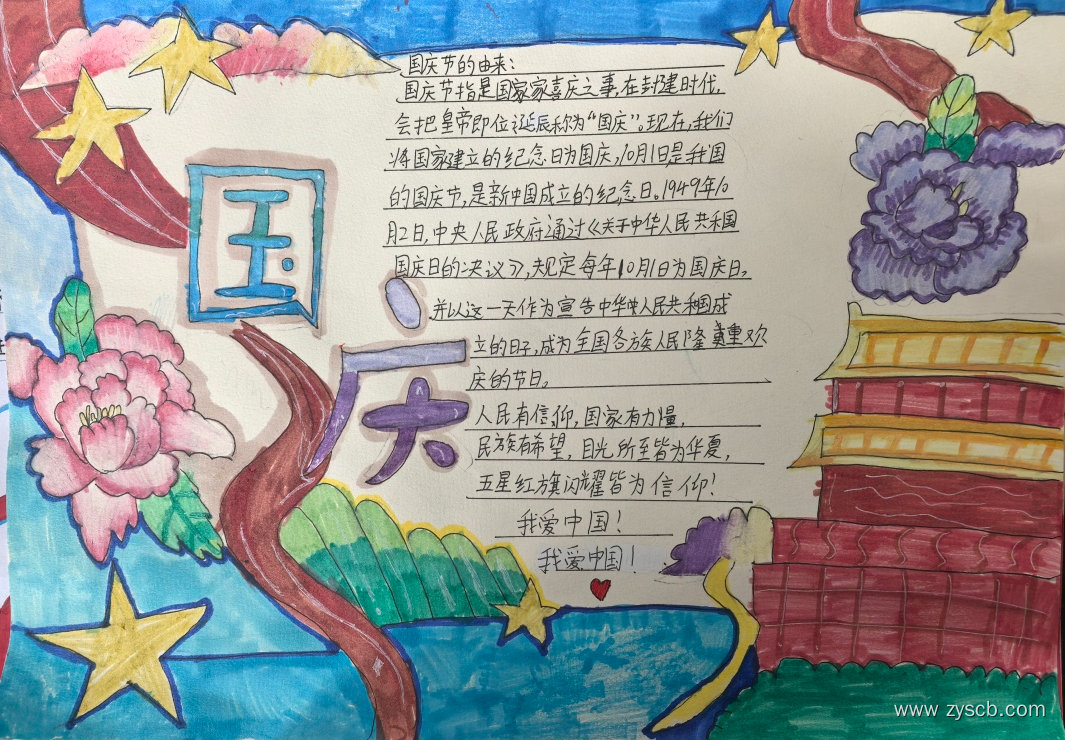 国庆
国庆节的由来：
国庆节指是国家家喜庆之事，在封建时代，
会把皇帝即位诞辰称为“国庆”。现在，我们
将国家建立的纪念日为国庆，10月1日是我国
的国庆节，是新中国成立的纪念日。1949年10
月2日，中央人民政府通过《关于中华人民共和国
国庆日的决议》，规定每年10月1日为国庆日，
并以这一天作为宣告中华人民共和国成
立的日子，成为全国各族人民隆重欢
庆的节日。
人民有信仰，国家有力量，
民族有希望，目光所至皆为华夏，
五星红旗闪耀皆为信仰！
我爱中国！
我爱中国！
www.zyscb.com